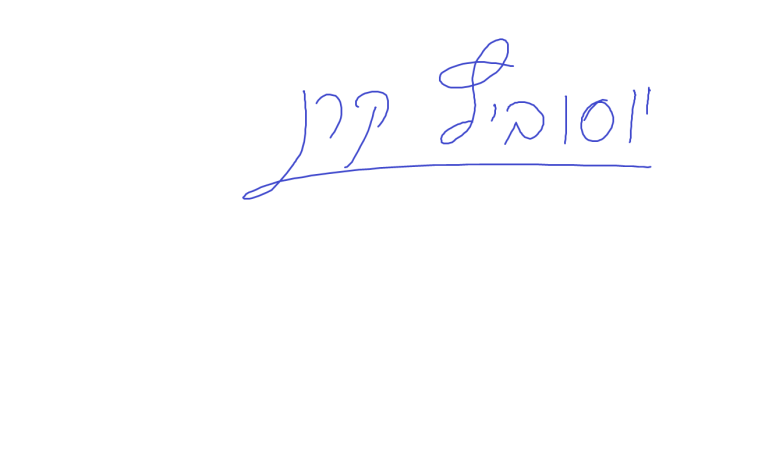 יוסומיל קרן